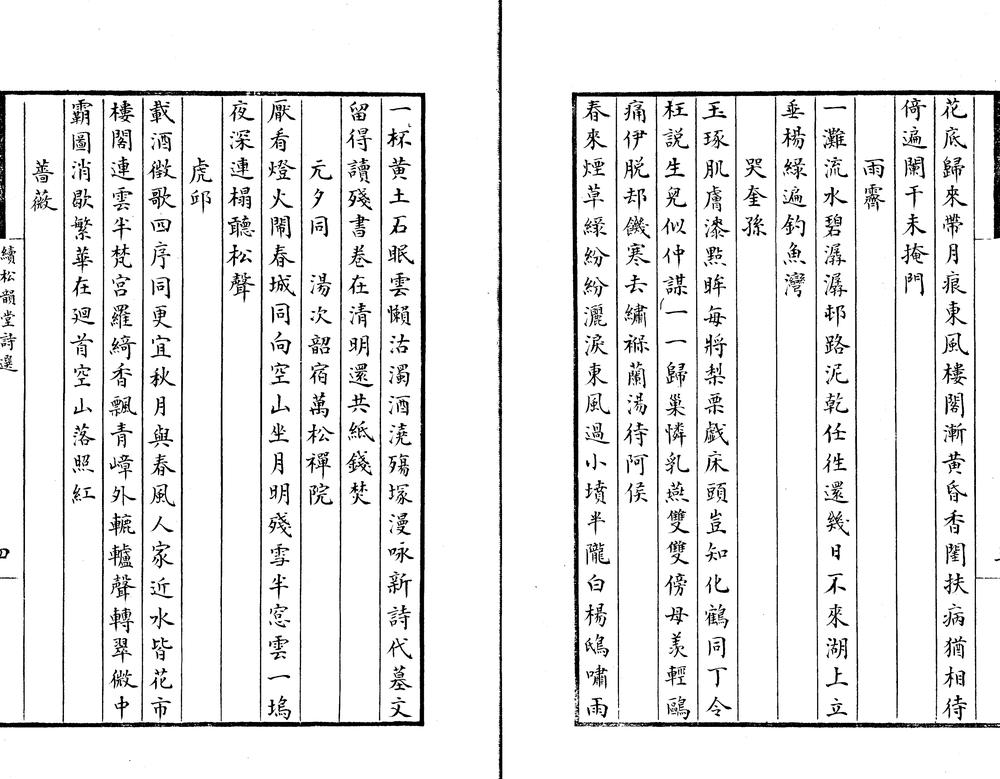 花底歸來帶月痕東風樓閣漸黃昏香閨扶病猶相待
倚遍闌干未掩門
雨霽
一灘流水碧潺潺邨路泥乾任徃還幾日不來湖上立
垂楊緑遍釣魚灣
哭奎孫
玉琢肌膚漆㸃眸每將梨栗戲床頭豈知化鶴同丁令
枉説生兒似仲謀一一歸巢憐乳燕雙雙傍母羡輕鷗
痛伊脱却饑寒去繡褓蘭湯待阿侯
春來煙草緑紛紛灑淚東風過小墳半隴白楊鴟嘯雨
一抔黃土石眠雲懶沽濁酒澆殤塚漫咏新詩代墓文
留得讀殘書卷在清明還共紙錢焚
元夕同湯次韶宿萬松禪院
厭看燈火鬧春城同向空山坐月明殘雪半窓雲一塢
夜深連榻聽松聲
虎邱
載酒徵歌四序同更宜秋月與春風人家近水皆花市
樓閣連雲半梵宮羅綺香飄青嶂外轆轤聲轉翠微中
霸圖消歇繁華在廻首空山落照紅
薔薇
續松韻堂詩選
四